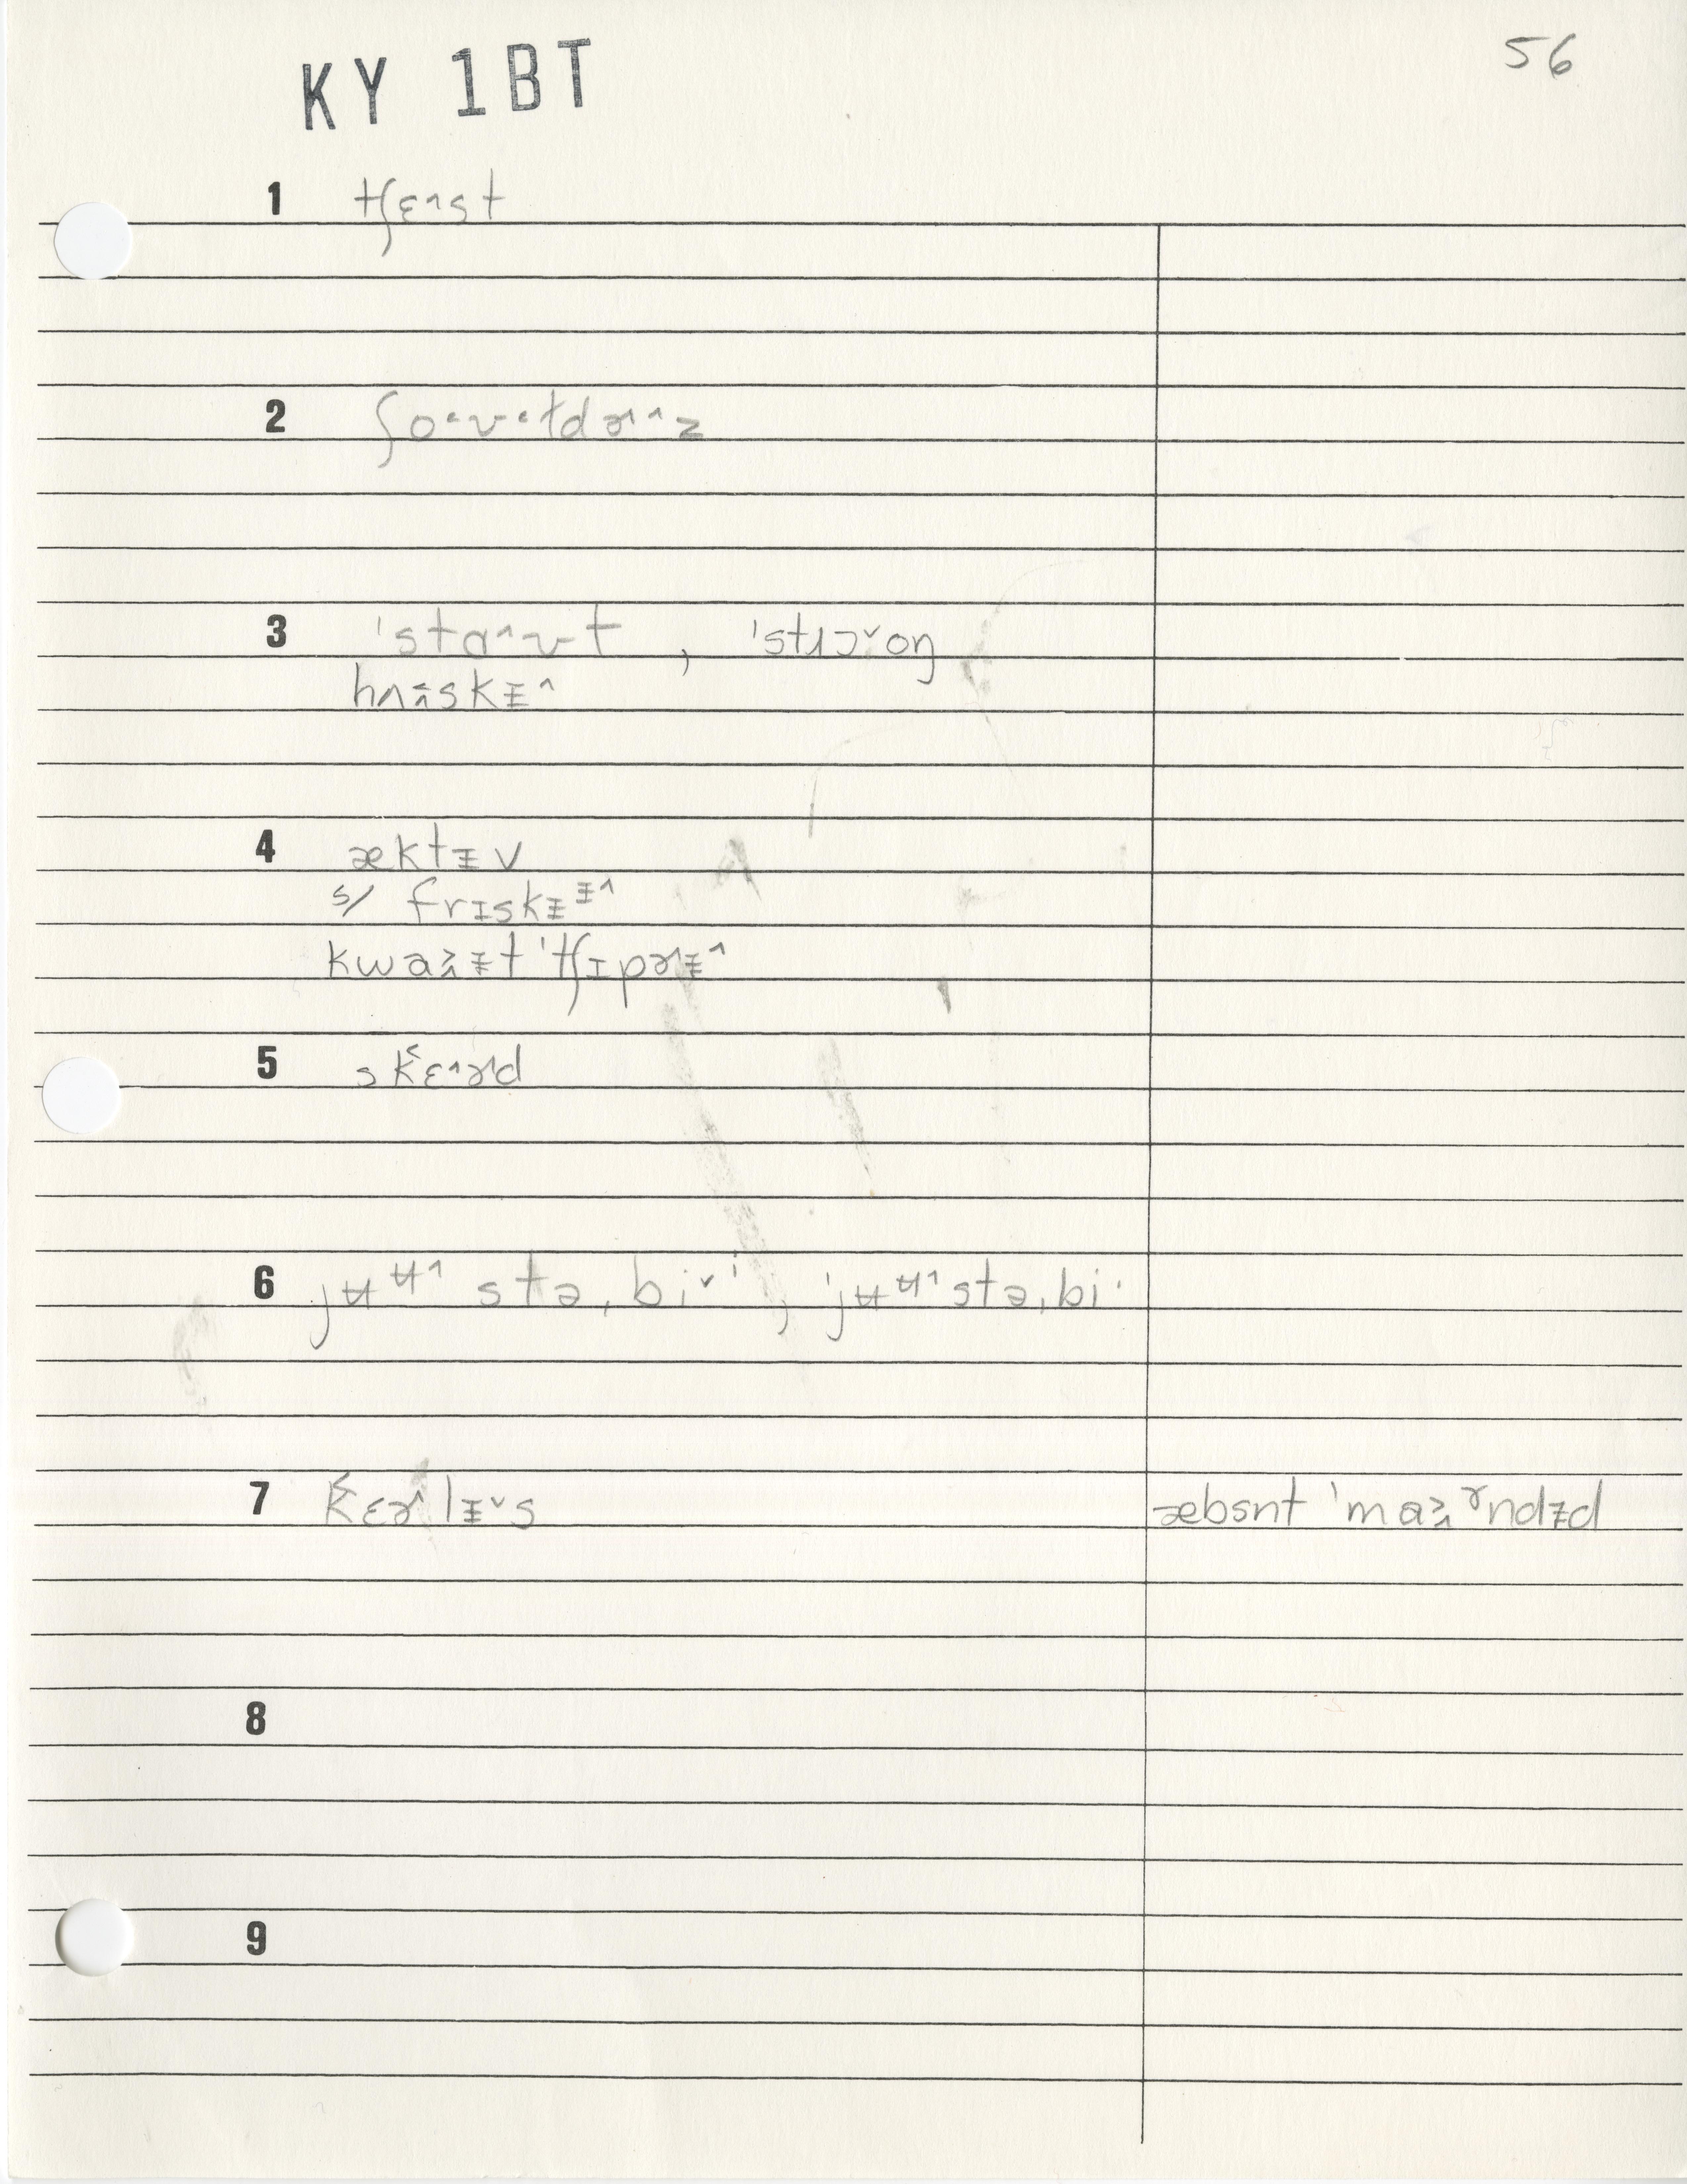 KY 1BT
56
1 tʃɛ˄st
2 ʃo˂ʊ˂tdɚ˄z
3 ˈstɑ˄ʊt , ˈstɹɔ˅oŋ
hʌɪ̭skɪ̵˄
4 æktɪ̵v
s/ frɪskɪ̵ᵻ˄
kwaɪ̭ɪ̵t ˈtʃɪpɚɪ̵˄
5 sk̂ɛ˄ɚd
6 jʉᶶ˄stəˌbi˅ˈ ; ˈjʉᶶ˄stəˌbi·
7 k̂ɛɚ˄lɪ̵˅s æbsnt ˈmaɪ̭ᵊ˞ndɪ̵d
8
9